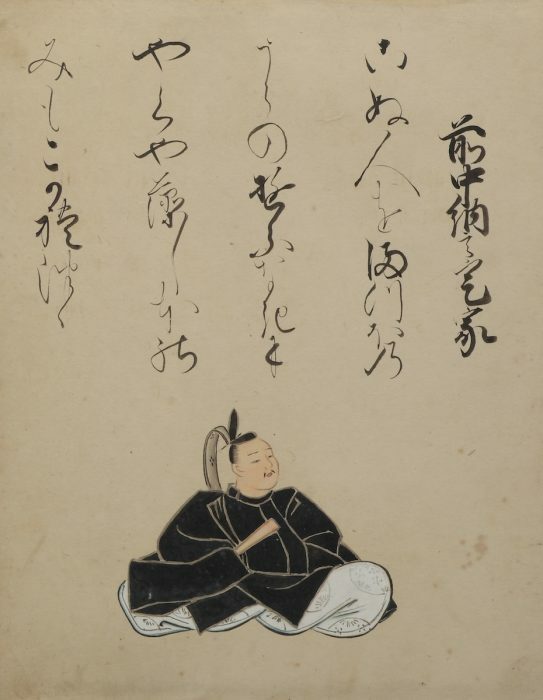 前中納言定家
こぬ人をまつほの
うらのゆふなきに
やくや藻しほの
みもこかれつゝ